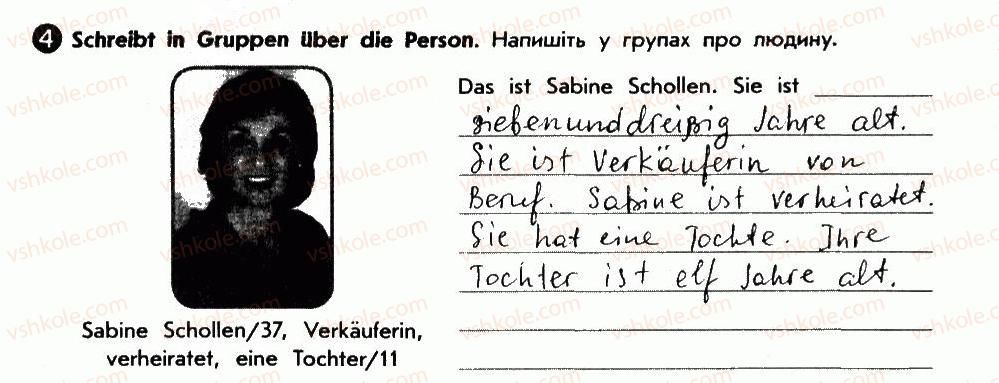 4 Schreibt in Gruppen über die Person. Напишіть у групах про людину.
Das ist Sabine Schollen. Sie ist
siebenunddreißig Jahre alt.
Sie ist Verkäuferin von
Beruf. Sabine ist verheiratet.
Sie hat eine Tochte. Ihre
Tochter ist elf Jahre alt.
Sabine Schollen/37, Verkäuferin,
verheiratet, eine Tochter/11
vshkole.com